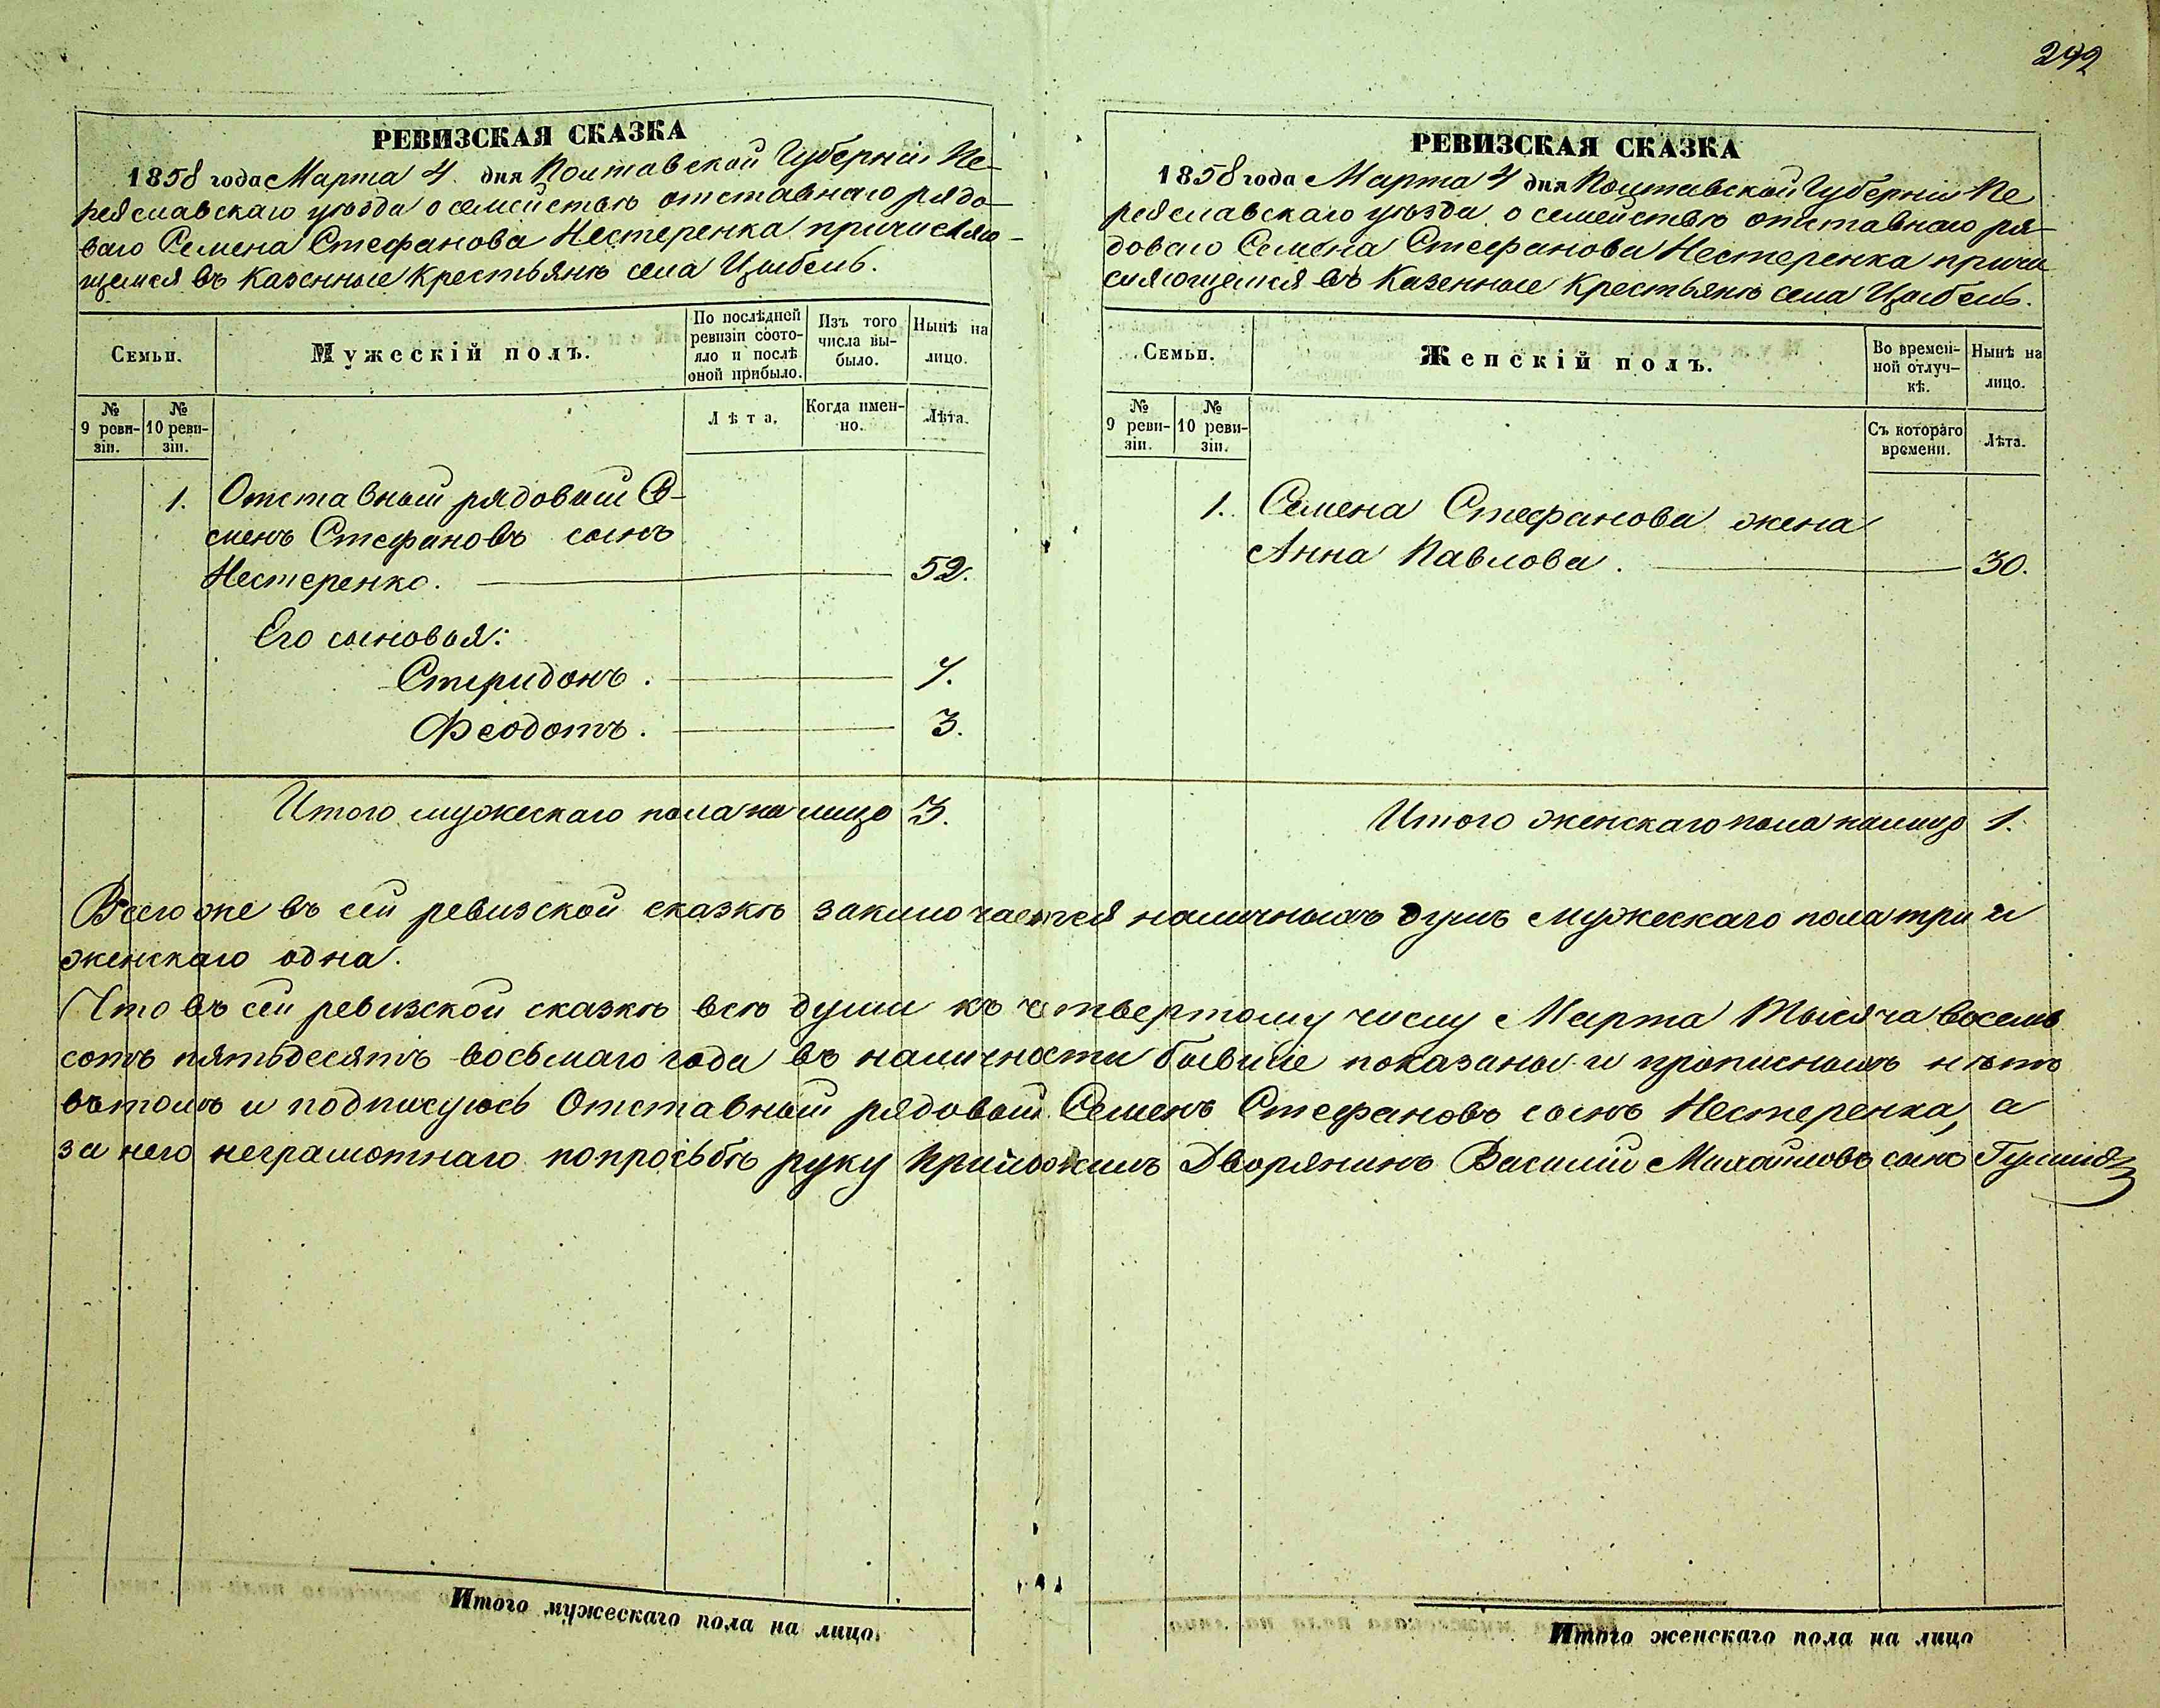 292
РЕВИЗСКАЯ СКАЗКА
1858 года Марта 4 дня Полтавской Губерніи Пе-
реяславскаго уѣзда о семействѣ отставнаго рядо-
ваго Семена Стефанова Нестеренка причисляю-
щемся въ казенные крестьяне села Цыбель.
Семьи.
Мужескій полъ.
По послѣдней ревизіи состо-
яло и послѣ оной прибыло.
Изъ того числа вы-
было.
Нынѣ на лицо.
№ 9 реви-
зіи.
№ 10 реви-
зіи.
Лѣта.
Когда имен-
но.
Лѣта.
1. Отставный рядовый Се-
менъ Стефановъ сынъ
Нестеренко. 52.
Его сыновья:
Спиридонъ. 7.
Феодотъ. 3.
Итого мужескаго пола на лицо 3.
РЕВИЗСКАЯ СКАЗКА
1858 года Марта 4 дня Полтавской Губерніи Пе
реяславскаго уѣзда о семействѣ отставнаго ря-
доваго Семена Стефанова Нестеренка причи
сляющемся въ казенные крестьяне села Цыбель.
Семьи.
Женскій полъ.
Во времен-
ной отлуч-
кѣ.
Нынѣ на лицо.
№ 9 реви-
зіи.
№ 10 реви-
зіи.
Съ котораго времени.
Лѣта.
1. Семена Стефанова жена
Анна Павлова. 30.
Итого женскаго пола налицо 1.
Всего же въ сей ревизской сказкѣ заключается наличныхъ душъ мужескаго пола три и
женскаго одна.
Что въ сей ревизской сказкѣ всѣ души къ четвертому числу Марта тысяча восемь
сотъ пятьдесятъ восьмаго года въ наличности бывшіе показаны и прописныхъ нѣтъ
въ томъ и подписуюсь Отставный рядовый Семенъ Стефановъ сынъ Нестеренка, а
за него неграмотнаго по просьбѣ руку приложилъ Дворянинъ Василій Михайловъ сынъ
Итого мужескаго пола на лицо
Итого женскаго пола на лицо